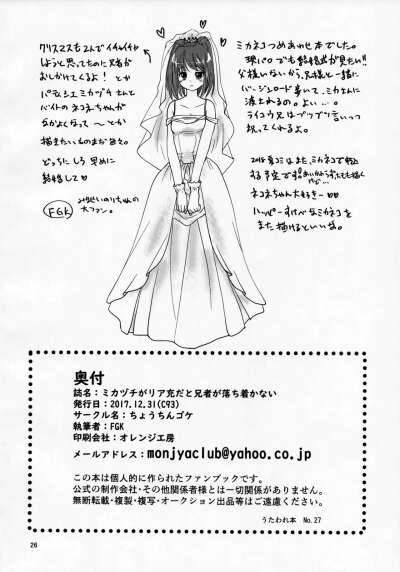 ミカネコつめあわせ本でした。
現パロでも結婚式が見たい!!
父様いないから、兄様と一緒に
バージンロード歩いて、ミカさんに
渡されるの。よい…。
ライコウ兄はブツブツ言いつつ
祝ってくれるよ。
ネコネちゃん大好きー♡♡
ハッピーすけべなミカネコを
また描けるといいな。
クリスマスも2人でイチャイチャ
しようと思ってたのに兄者が
おしかけてくるよ!とか
パティシエミカヅチさんと
バイトのネコネちゃんが
なかよくなって〜とか
描きたいものまだある。
どっちにしろ早めに
結婚して♡
FGK
大ファン。
奥付
誌名:ミカヅチがリア充だと兄者が落ち着かない
発行日:2017.12.31(C93)
サークル名:ちょうちんゴケ
執筆者:FGK
印刷会社:オレンジ工房
メールアドレス:monjyaclub@yahoo.co.jp
この本は個人的に作られたファンブックです。
公式の制作会社・その他関係者様とは一切関係がありません。
無断転載・複製・複写・オークション出品等はご遠慮ください。
うたわれ本 No.27
26